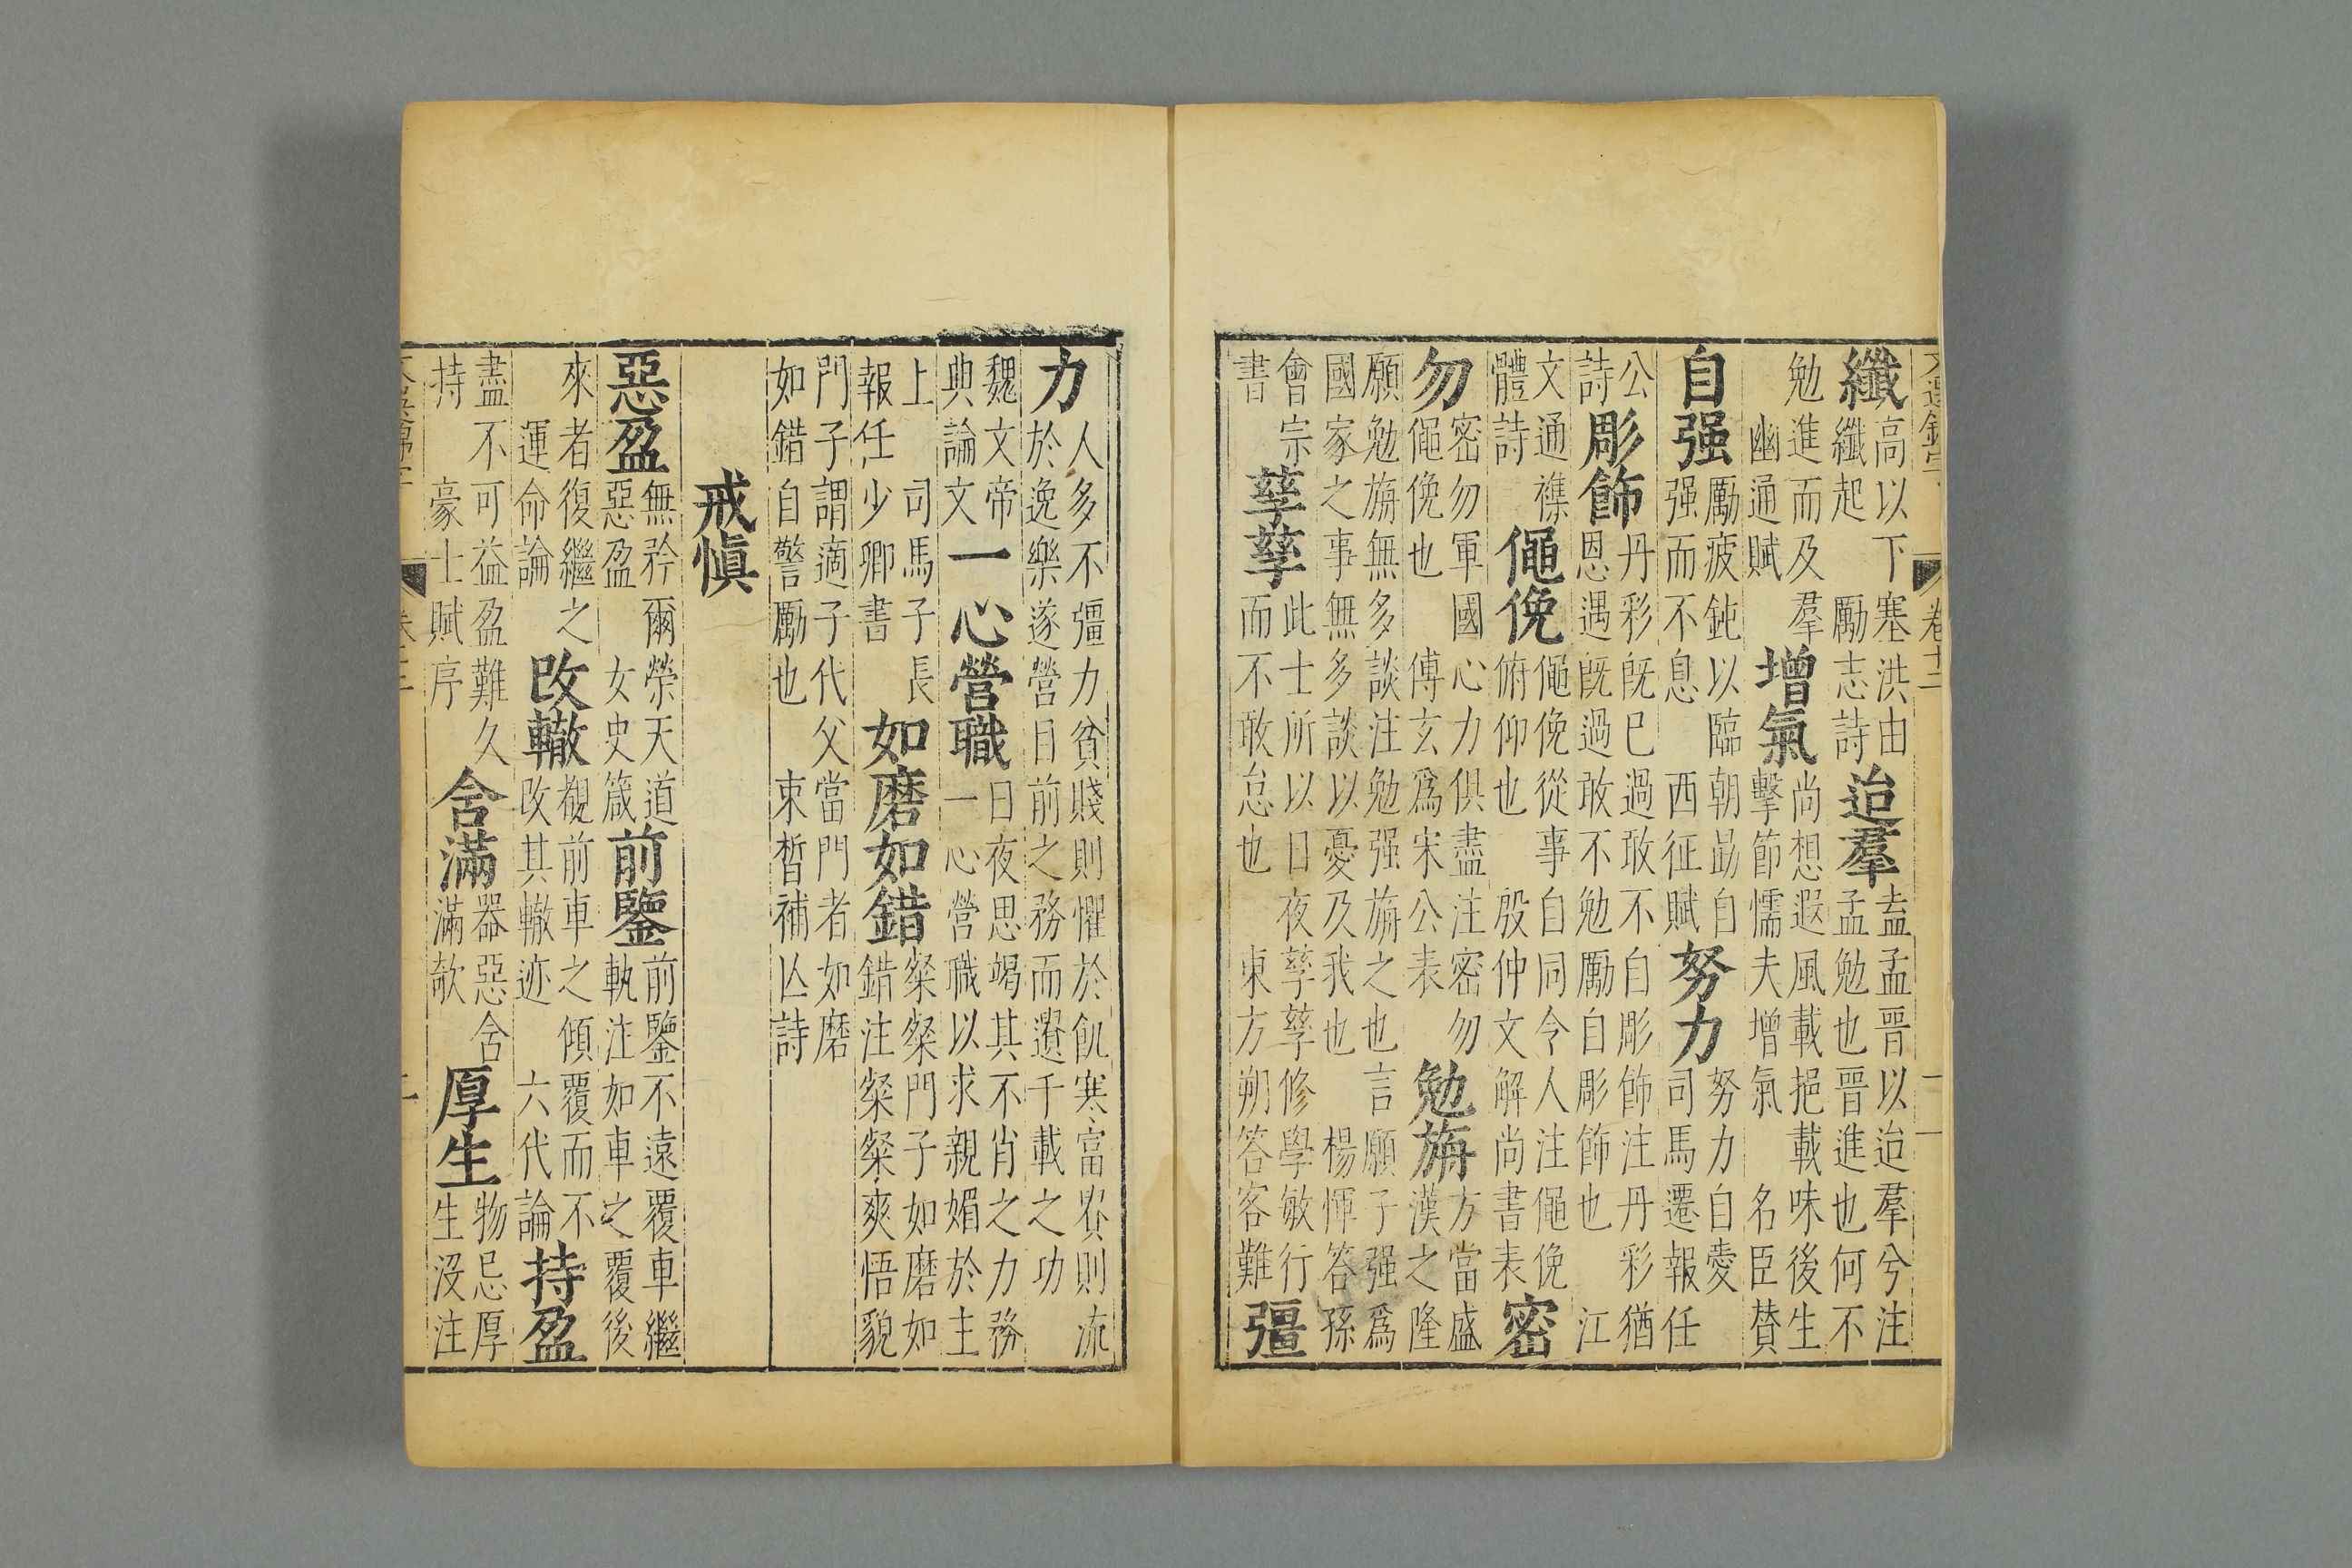 文選錦字 卷十二
纖高以下基洪由纖起 勵志詩 迨羣盍孟晉以迨羣兮注孟勉也晉進也何不
勉進而及羣幽通賦 增氣尚想遐風載挹載味後生擊節懦夫增氣 名臣贊
自强勵疲鈍以臨朝勗自强而不息 西征賦 努力努力自愛司馬遷報任
公詩 彫飾丹彩旣已過敢不自彫飾注丹彩猶恩遇旣過敢不勉勵自彫飾也 江
文通襍體詩 僶俛僶俛從事自同令人注僶俛俯仰也 殷仲文解尚書表 密
勿密勿軍國心力俱盡注密勿僶俛也 傅玄爲宋公表 勉旃方當盛漢之隆
願勉旃無多談注勉强旃之也言願子强爲國家之事無多談以憂及我也 楊惲答孫
會宗書 孳孳此士所以日夜孳孳修學敏行而不敢怠也 東方朔答客難 彊
力人多不彊力貧賤則懼於飢寒富貴則流於逸樂遂營目前之務而遺千載之功
魏文帝典論文 一心營職日夜思竭其不肖之力務一心營職以求親媚於主
上 司馬子長報任少卿書 如磨如錯粲粲門子如磨如錯注粲粲爽悟貌
門子謂適子代父當門者如磨如錯自警勵也 束晳補亾詩
戒愼
惡盈無矜爾榮天道惡盈 女史箴 前鑒前鑒不遠覆車繼軌注如車之覆後
來者復繼之運命論 改轍觀前車之傾覆而不改其轍迹 六代論 持盈
盡不可益盈難久持 豪士賦序 舍滿器惡舍滿欹 厚生物忌厚生沒注